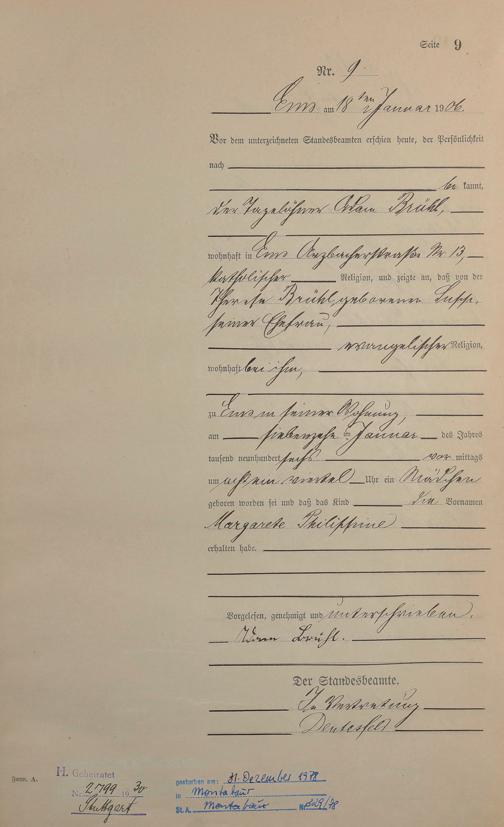 Seite 9
Nr. 9
Ems am 18ten Januar 1906.
Vor dem unterzeichneten Standesbeamten erschien heute, der Persönlichkeit
nach
be kannt,
der Tagelöhner Adam Brühl,
wohnhaft in Ems Arzbacherstraße Nr 13,
katholischer Religion, und zeigte an, daß von der
Therese Brühl, geborenen
seiner Ehefrau,
evangelischer Religion,
wohnhaft bei ihm,
zu Ems in seiner Wohnung,
am siebenzehnten Januar des Jahres
tausend neunhundert sechs vor mittags
um acht ein viertel Uhr ein Mädchen
geboren worden sei und daß das Kind die Vornamen
Margarete Philippine
erhalten habe.
Vorgelesen, genehmigt und unterschrieben.
Adam Brühl.
Der Standesbeamte.
In Vertretung
Form. A.
H. Geheiratet
Nr. 2799 1930
Stuttgart
gestorben am: 31. Dezember 1978
in Montabaur
St.A. Montabaur Nr. 329/78